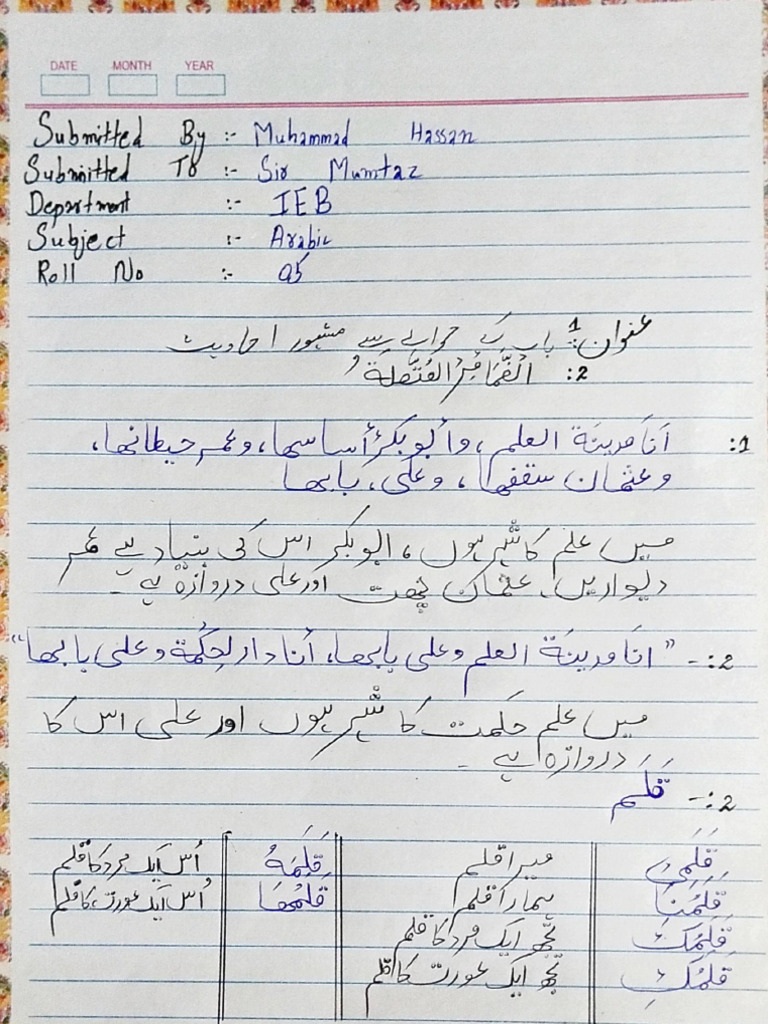 DATE MONTH YEAR
Submitted By :- Muhammad Hassan
Submitted To :- Sir Mumtaz
Department :- IEB
Subject :- Arabic
Roll No :- 05
عنوان 1: باب کے حوالے سے مشہور احادیث
2: الضَّمَائِرُ المُتَّصِلَة
1: اَنَا مدینَة العلم، وأبو بکرٌ أساسها، وعمر حیطانها،
وعثمان سقفها، وعلی بابها
میں علم کا شہر ہوں، ابوبکر اس کی بنیاد ہے عمر
دیواریں، عثمان چھت اور علی دروازہ ہے۔
2:- ”انَا مدینَة العلم وعلی بابھا، أنا دار لحِکْمة وعلی بابھا“
میں علم حکمت کا شہر ہوں اور علی اس کا
دروازہ ہے۔
2:- قَلَم
قَلَمِی میرا قلم قَلَمُهُ اُس ایک مرد کا قلم
قَلَمُنَا ہمارا قلم قَلَمُهَا اُس ایک عورت کا قلم
قَلَمُکَ تجھ ایک مرد کا قلم
قلمُکِ تجھ ایک عورت کا قلم